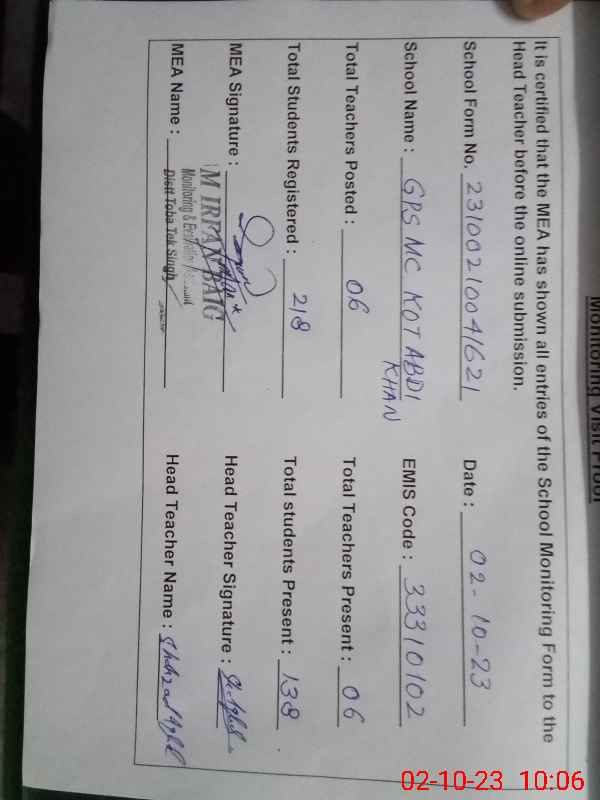 Monitoring Visit Proof
It is certified that the MEA has shown all entries of the School Monitoring Form to the
Head Teacher before the online submission.
School Form No. 23100210041621 Date : 02-10-23
School Name : GPS MC KOT ABDI KHAN EMIS Code : 33310102
Total Teachers Posted : 06 Total Teachers Present : 06
Total Students Registered : 218 Total students Present : 138
MEA Signature : Head Teacher Signature :
M IRFAN BAIG
Monitoring & Evaluation
MEA Name : Distt Toba Tek Singh Head Teacher Name :
02-10-23 10:06